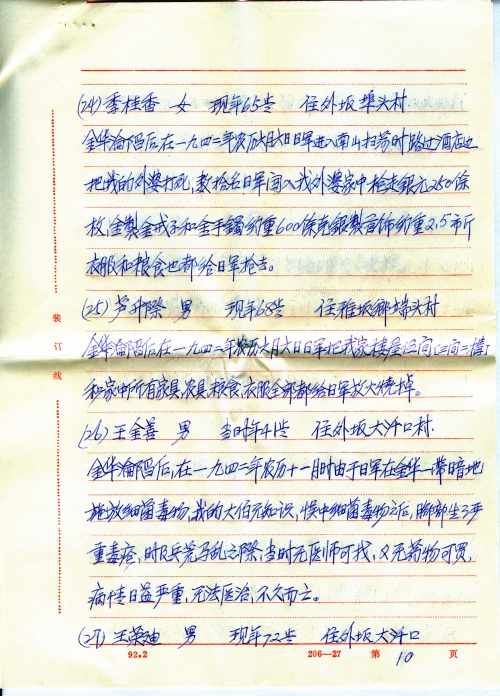 (24)季桂香 女 现年65岁 住外坂埠头村.
金华沦陷后在一九四二年农历六月六日日军进入南山扫荡时路过酒店边
把我的外婆打死,数拾名日军闯入我外婆家中抢走银元250余
枚,金製金戒子和金手镯约重600余克銀製首饰约重2.5市斤
衣服和粮食也都给日军抢去。
(25)芦升際 男 现年68岁 住雅坂鄉埠头村
金华沦陷后在一九四二年农历六月六日日军把我家楼屋伍间(三间二横)
和家中所有家具,农具,粮食,衣服全部都给日军放火烧掉。
(26)王金善 男 当时年41岁 住外坂大汴口村.
金华沦陷后,在一九四二年农历十一月时由于日军在金华一带暗地
施放细菌毒物,我的大伯无知识,误中细菌毒物之后,脚部生了严
重毒疮,时及兵荒马乱之際,当时无医师可找,又无药物可买,
病情日益严重,无法医治,不久而亡。
(27)王荣迪 男 现年72岁 住外坂大汴口
装订线
92.2 206—27 第 10 页